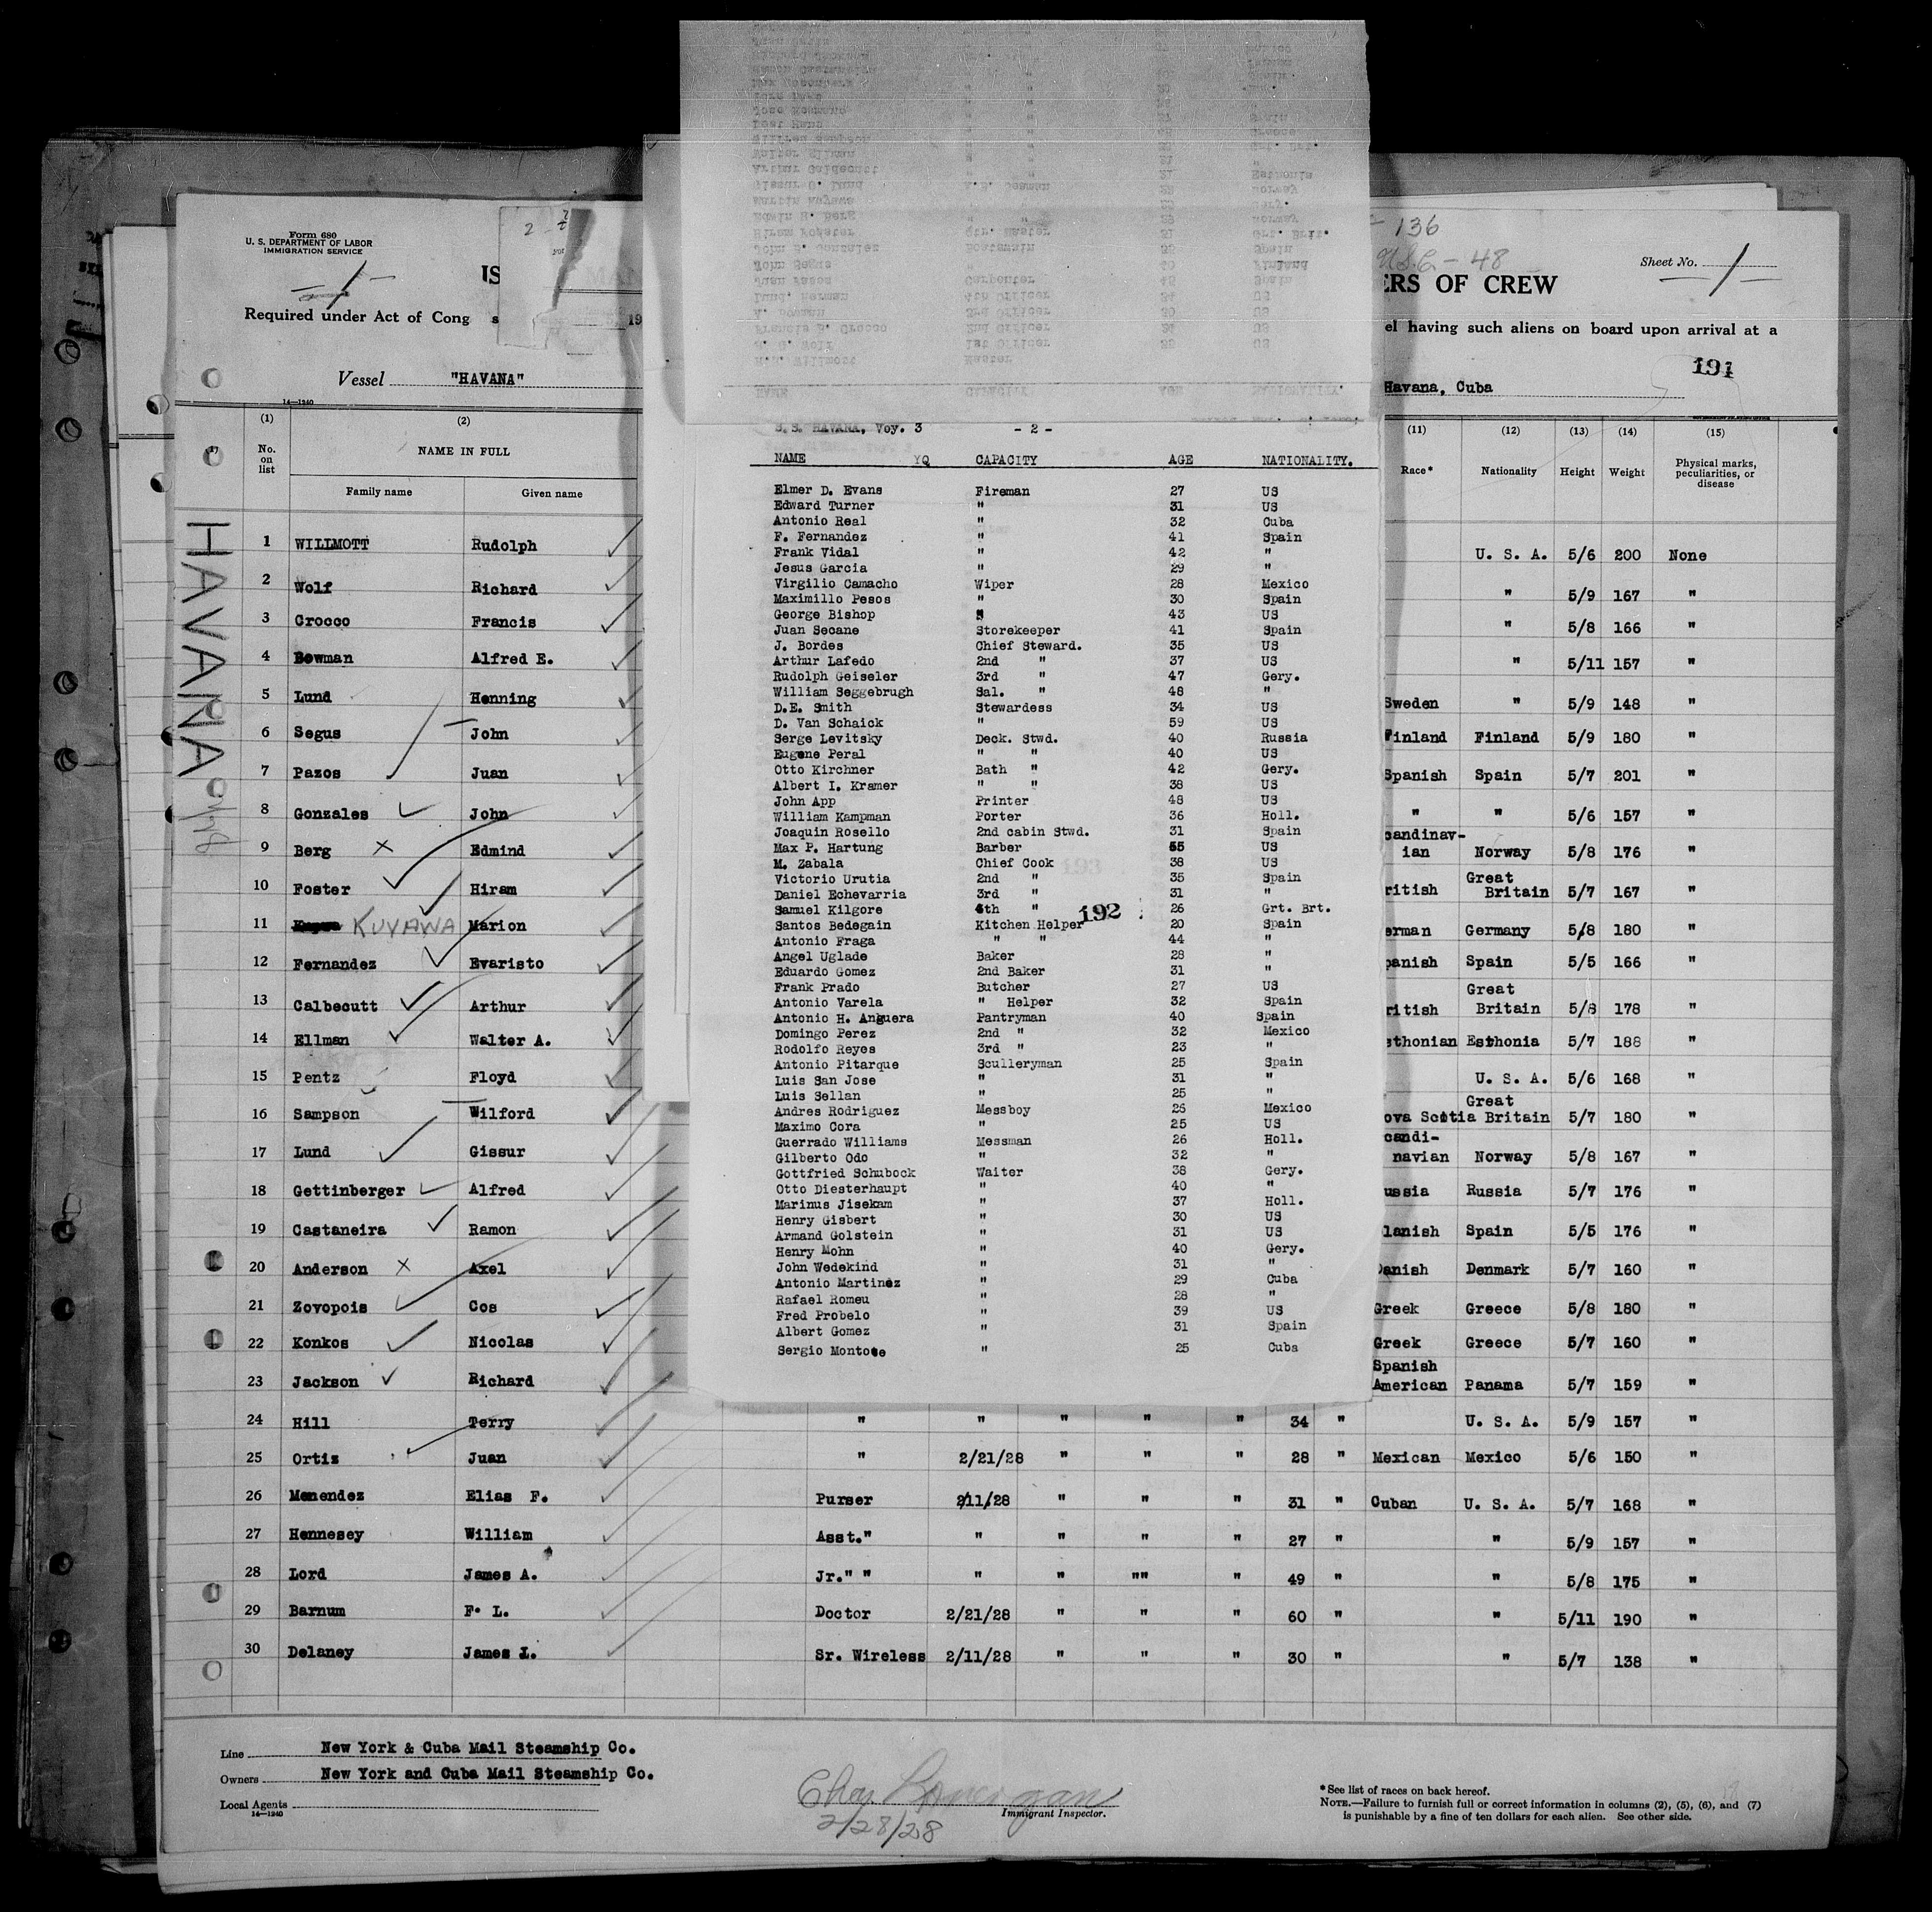 Form 680
U. S. DEPARTMENT OF LABOR
IMMIGRATION SERVICE
136
U.S.C - 48
Sheet No. 1
ERS OF CREW
Required under Act of Cong
el having such aliens on board upon arrival at a
191
Vessel "HAVANA"
Havana, Cuba
14—1240
HAVANA
(1) (2)
No. on list NAME IN FULL
Family name Given name
(11) (12) (13) (14) (15)
Race* Nationality Height Weight Physical marks, peculiarities, or disease
1 WILLMOTT Rudolph U. S. A. 5/6 200 None
2 Wolf Richard " 5/9 167 "
3 Crocco Francis " 5/8 166 "
4 Bowman Alfred E. " 5/11 157 "
5 Lund Henning Sweden " 5/9 148 "
6 Segus John Finland Finland 5/9 180 "
7 Pazos Juan Spanish Spain 5/7 201 "
8 Gonzales John " " 5/6 157 "
9 Berg Edmind Scandinav-ian Norway 5/8 176 "
10 Foster Hiram ritish Great Britain 5/7 167 "
11 KUYAWA Marion erman Germany 5/8 180 "
12 Fernandez Evaristo panish Spain 5/5 166 "
13 Calbecutt Arthur ritish Great Britain 5/8 178 "
14 Ellman Walter A. sthonian Esthonia 5/7 188 "
15 Pentz Floyd U. S. A. 5/6 168 "
16 Sampson Wilford ova Scotia Great Britain 5/7 180 "
17 Lund Gissur candi-navian Norway 5/8 167 "
18 Gettinberger Alfred ussia Russia 5/7 176 "
19 Castaneira Ramon Spain 5/5 176 "
20 Anderson Axel Danish Denmark 5/7 160 "
21 Zovopois Cos Greek Greece 5/8 180 "
22 Konkos Nicolas Greek Greece 5/7 160 "
23 Jackson Richard Spanish American Panama 5/7 159 "
24 Hill Terry " " " " " 34 " U. S. A. 5/9 157 "
25 Ortiz Juan " 2/21/28 " " " 28 " Mexican Mexico 5/6 150 "
26 Menendez Elias F. Purser 2/11/28 " " " 31 " Cuban U. S. A. 5/7 168 "
27 Hennesey William Asst." " " " " 27 " " 5/9 157 "
28 Lord James A. Jr." " " " "" " 49 " " 5/8 175 "
29 Barnum F. L. Doctor 2/21/28 " " " 60 " " 5/11 190 "
30 Delaney James L. Sr. Wireless 2/11/28 " " " 30 " " 5/7 138 "
Line New York & Cuba Mail Steamship Co.
Owners New York and Cuba Mail Steamship Co.
Local Agents
14—1240
Immigrant Inspector.
2/28/28
*See list of races on back hereof.
NOTE.—Failure to furnish full or correct information in columns (2), (5), (6), and (7)
is punishable by a fine of ten dollars for each alien. See other side.
S.S. HAVANA, Voy. 3 - 2 -
NAME YQ CAPACITY AGE NATIONALITY.
Elmer D. Evans Fireman 27 US
Edward Turner " 31 US
Antonio Real " 32 Cuba
F. Fernandez " 41 Spain
Frank Vidal " 42 "
Jesus Garcia " 29 "
Virgilio Camacho Wiper 28 Mexico
Maximillo Pesos " 30 Spain
George Bishop " 43 US
Juan Secane Storekeeper 41 Spain
J. Bordes Chief Steward. 35 US
Arthur Lafedo 2nd " 37 US
Rudolph Geiseler 3rd " 47 Gery.
William Seggebrugh Sal. " 48 "
D.E. Smith Stewardess 34 US
D. Van Schaick " 59 US
Serge Levitsky Deck. Stwd. 40 Russia
Eugene Peral " " 40 US
Otto Kirchner Bath " 42 Gery.
Albert I. Kramer " " 38 US
John App Printer 48 US
William Kampman Porter 36 Holl.
Joaquin Rosello 2nd cabin Stwd. 31 Spain
Max P. Hartung Barber 55 US
M. Zabala Chief Cook 38 US
Victorio Urutia 2nd " 35 Spain
Daniel Echevarria 3rd " 31 "
Samuel Kilgore 4th " 26 Grt. Brt.
192
Santos Bedegain Kitchen Helper 20 Spain
Antonio Fraga " " 44 "
Angel Uglade Baker 28 "
Eduardo Gomez 2nd Baker 31 "
Frank Prado Butcher 27 US
Antonio Varela " Helper 32 Spain
Antonio H. Anguera Pantryman 40 Spain
Domingo Perez 2nd " 32 Mexico
Rodolfo Reyes 3rd " 23 "
Antonio Pitarque Sculleryman 25 Spain
Luis San Jose " 31 "
Luis Sellan " 25 "
Andres Rodriguez Messboy 26 Mexico
Maximo Cora " 25 US
Guerrado Williams Messman 26 Holl.
Gilberto Odo " 32 "
Gottfried Schubock Waiter 38 Gery.
Otto Diesterhaupt " 40 "
Marinus Jisekam " 37 Holl.
Henry Gisbert " 30 US
Armand Golstein " 31 US
Henry Mohn " 40 Gery.
John Wedekind " 31 "
Antonio Martinez " 29 Cuba
Rafael Romeu " 28 "
Fred Probelo " 39 US
Albert Gomez " 31 Spain
Sergio Montote " 25 Cuba